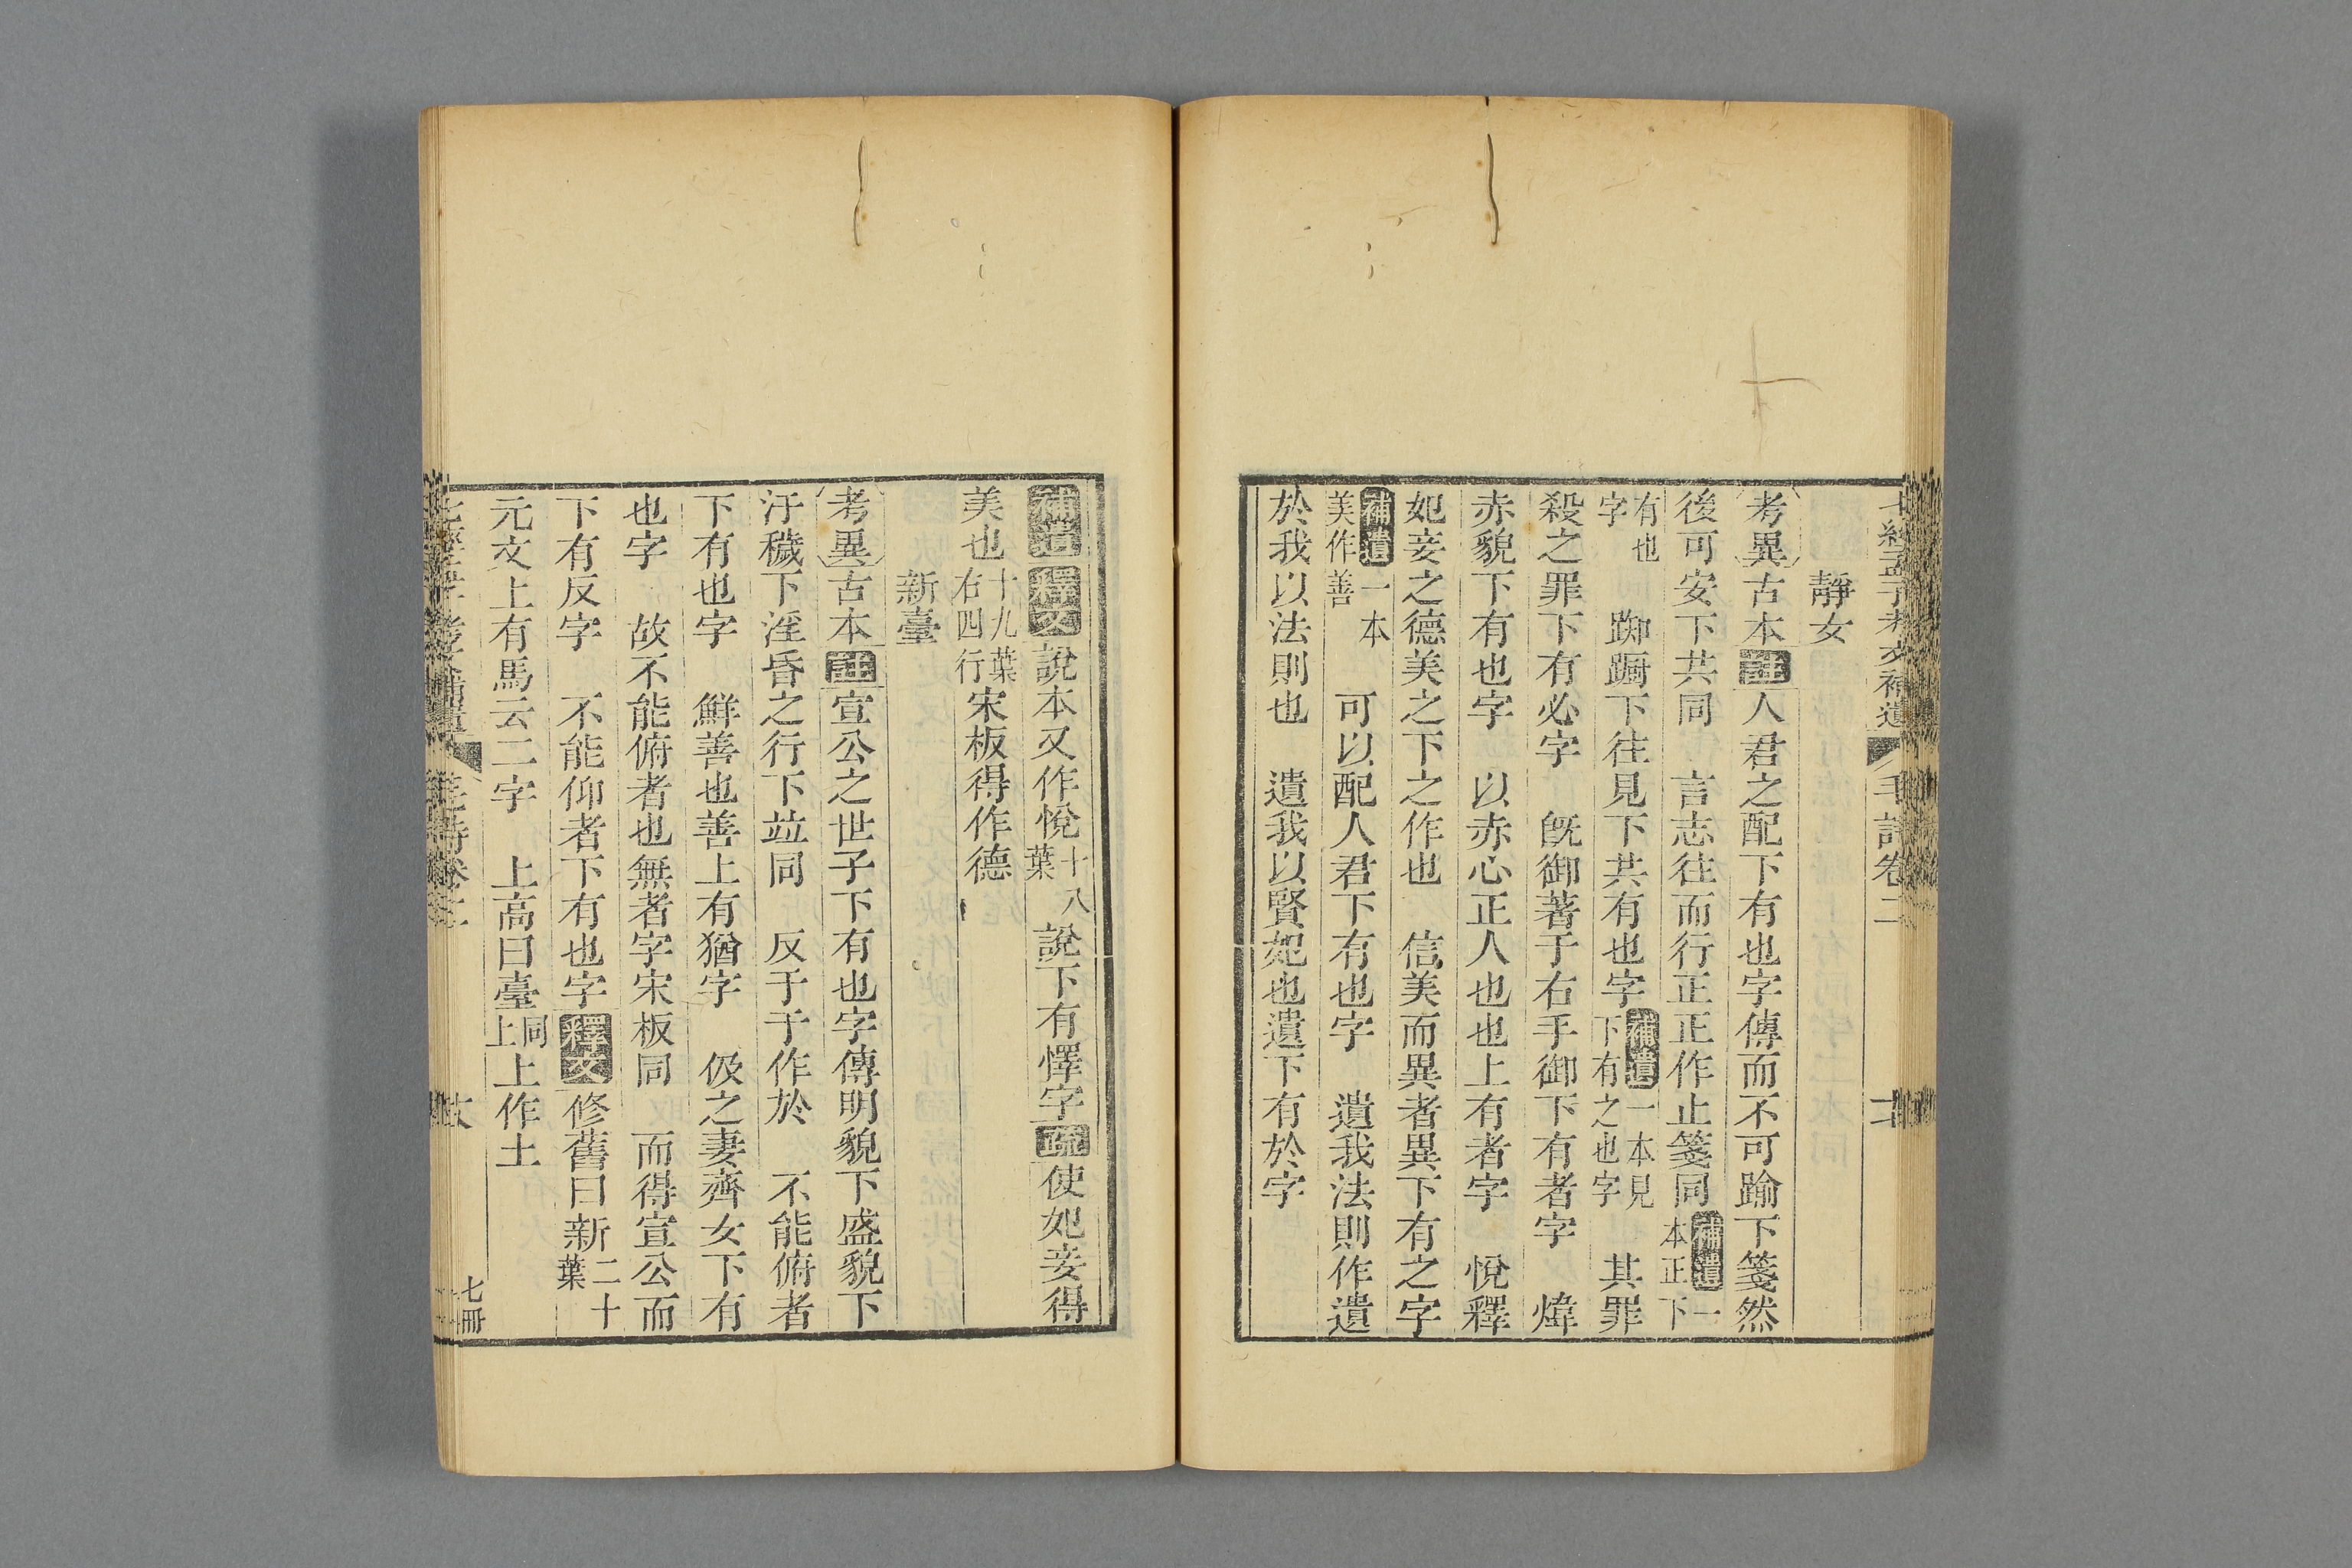 七經孟子考文補遺
毛詩卷二
靜女
考異古本註人君之配下有也字傳而不可踰下箋然
後可安下共同　言志往而行正正作止箋同補遺一
本正下
有也
字　踟躕下往見下共有也字補遺一本見
下有之也字　其罪
殺之罪下有必字　旣御著于右手御下有者字　煒
赤貌下有也字　以赤心正人也也上有者字　悅釋
妃妾之德美之下之作也　信美而異者異下有之字
補遺一本
美作善　可以配人君下有也字　遺我法則作遺
於我以法則也　遺我以賢妃也遺下有於字
補遺釋文說本又作悅十八
葉說下有懌字疏使妃妾得
美也十九葉
右四行宋板得作德
新臺
考異古本註宣公之世子下有也字傳明貌下盛貌下
汙穢下淫昏之行下竝同　反于于作於　不能俯者
下有也字　鮮善也善上有猶字　伋之妻齊女下有
也字　故不能俯者也無者字宋板同　而得宣公而
下有反字　不能仰者下有也字釋文修舊曰新二十
葉
元文上有馬云二字　上高曰臺同
上上作土
七冊